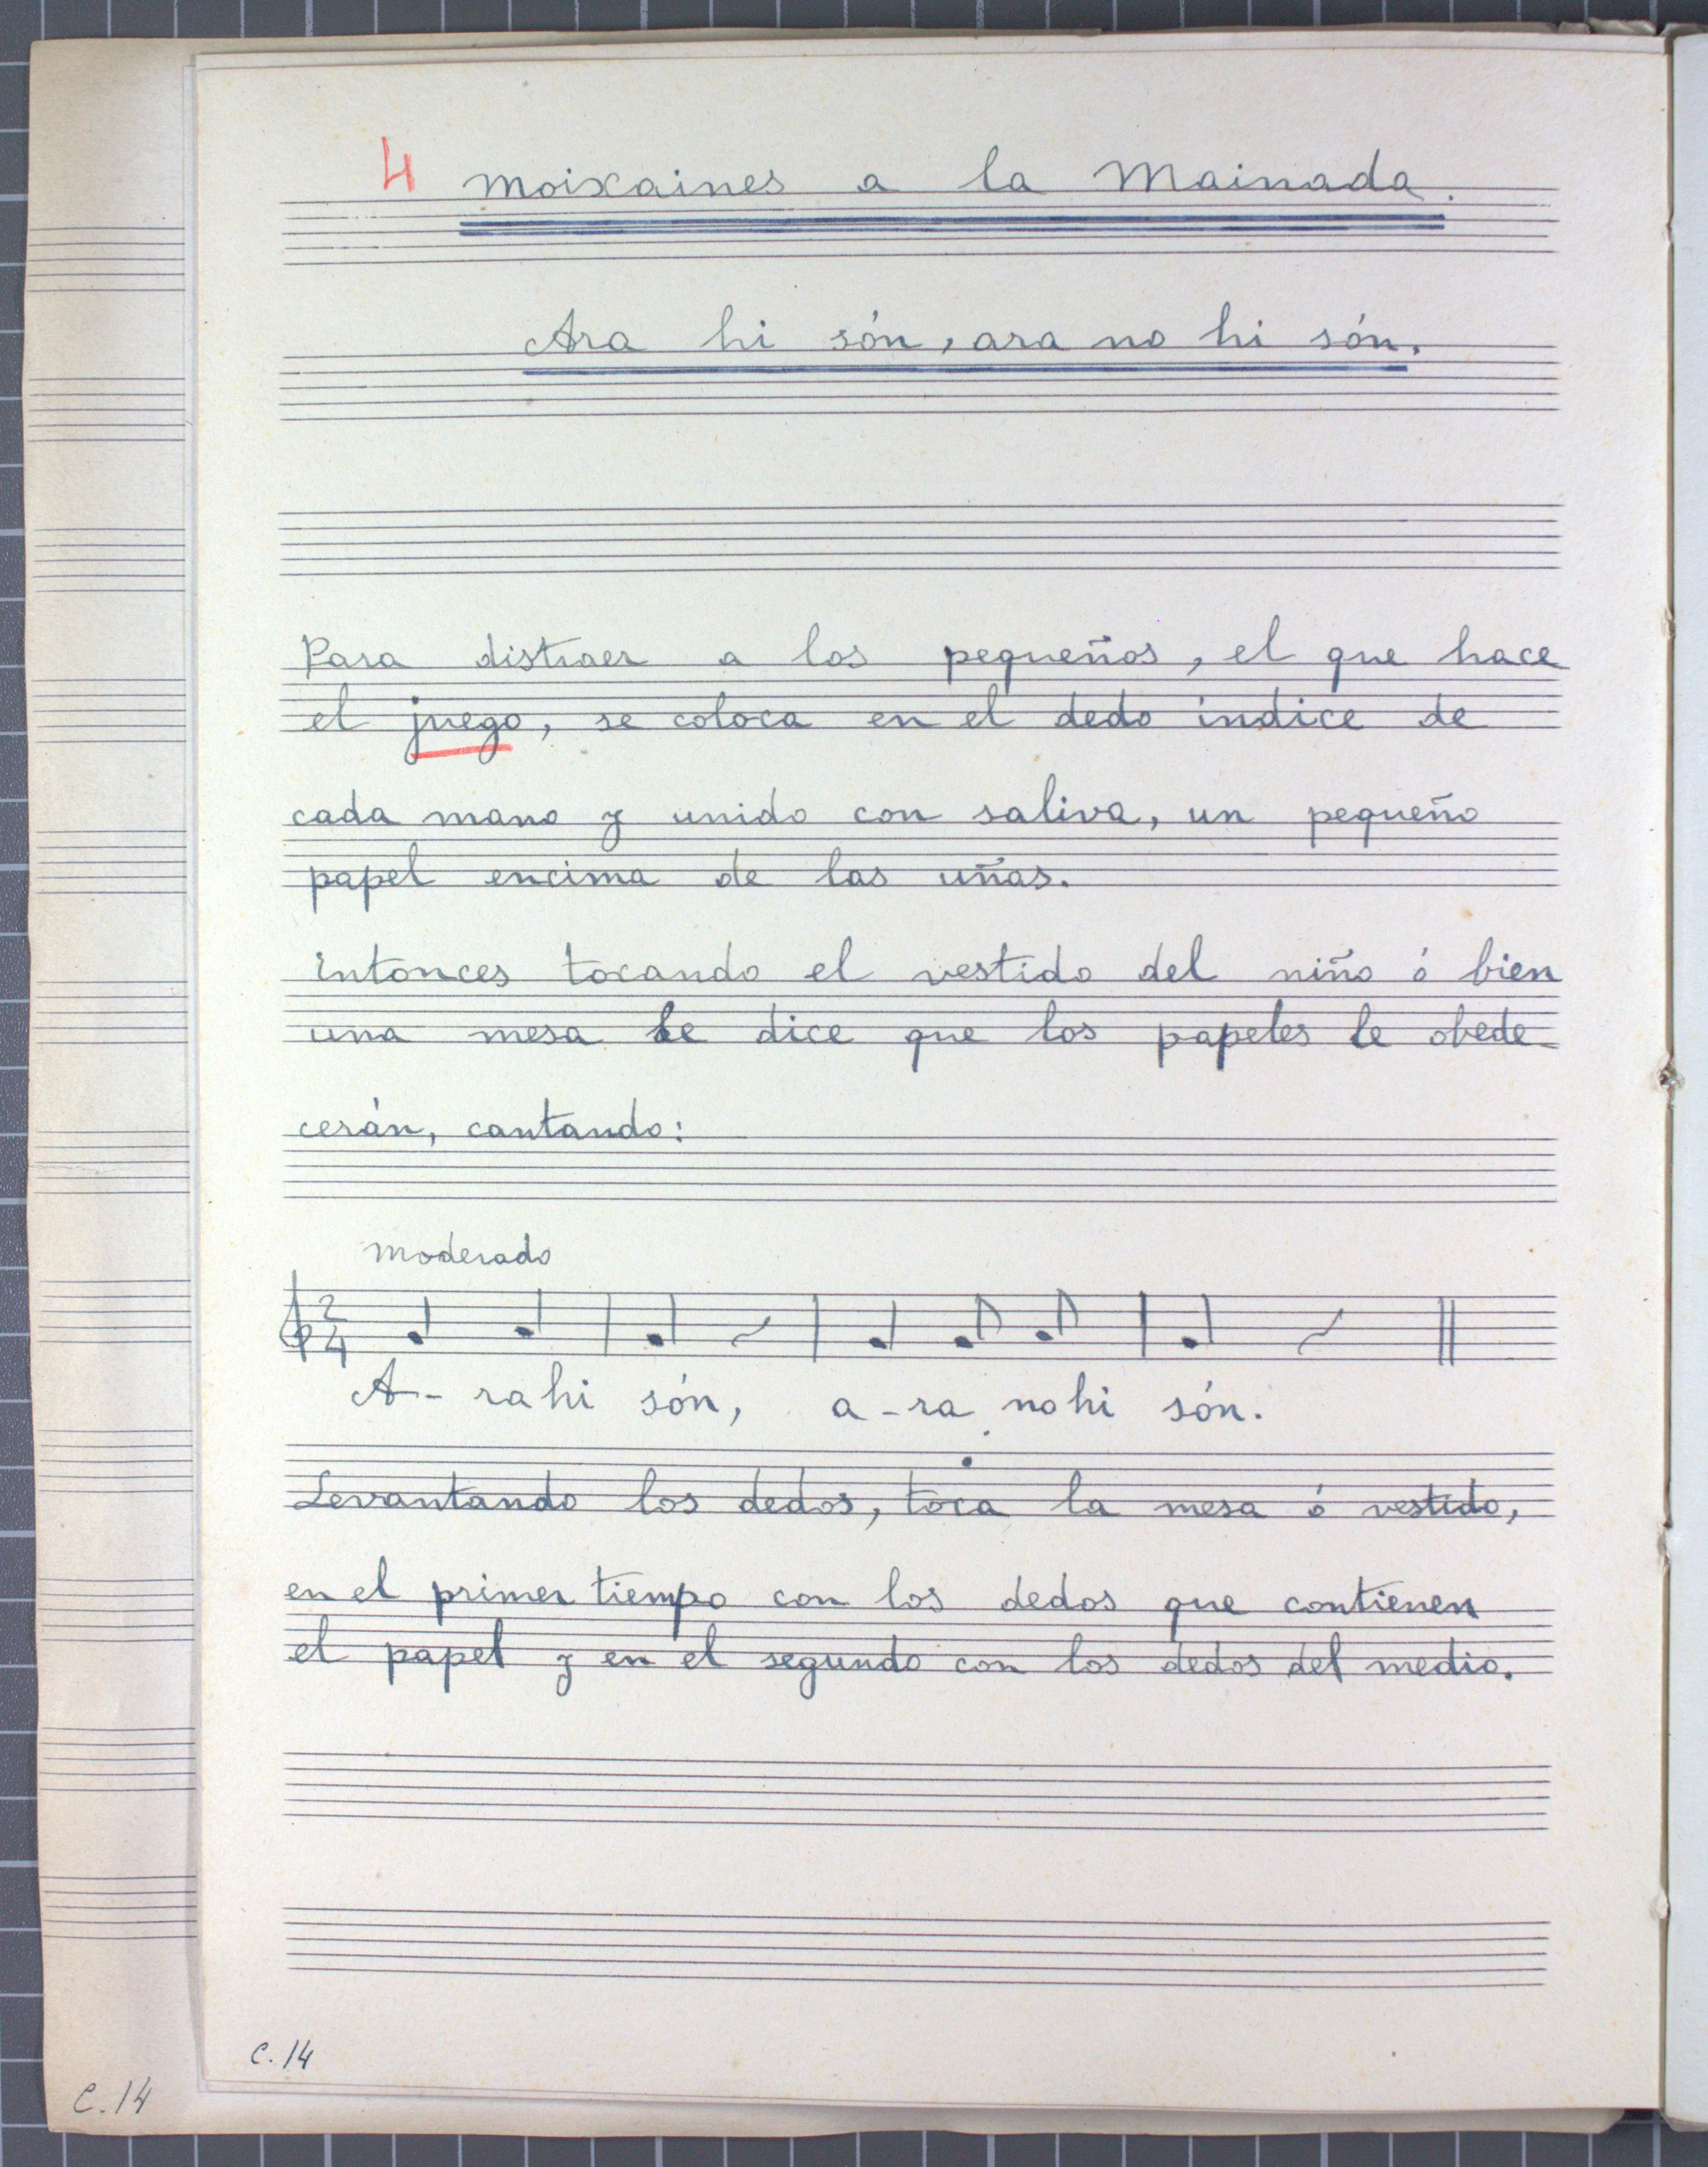 4 Moixaines a la Mainada.
Ara hi són, ara no hi són.
Para distraer a los pequeños, el que hace
el juego, se coloca en el dedo índice de
cada mano y unido con saliva, un pequeño
papel encima de las uñas.
Entonces tocando el vestido del niño ó bien
una mesa le dice que los papeles le obede-
cerán, cantando:
Moderado
2
4
A- ra hi són, a-ra no hi són.
Levantando los dedos, toca la mesa ó vestido,
en el primer tiempo con los dedos que contienen
el papel y en el segundo con los dedos del medio.
C.14
C.14